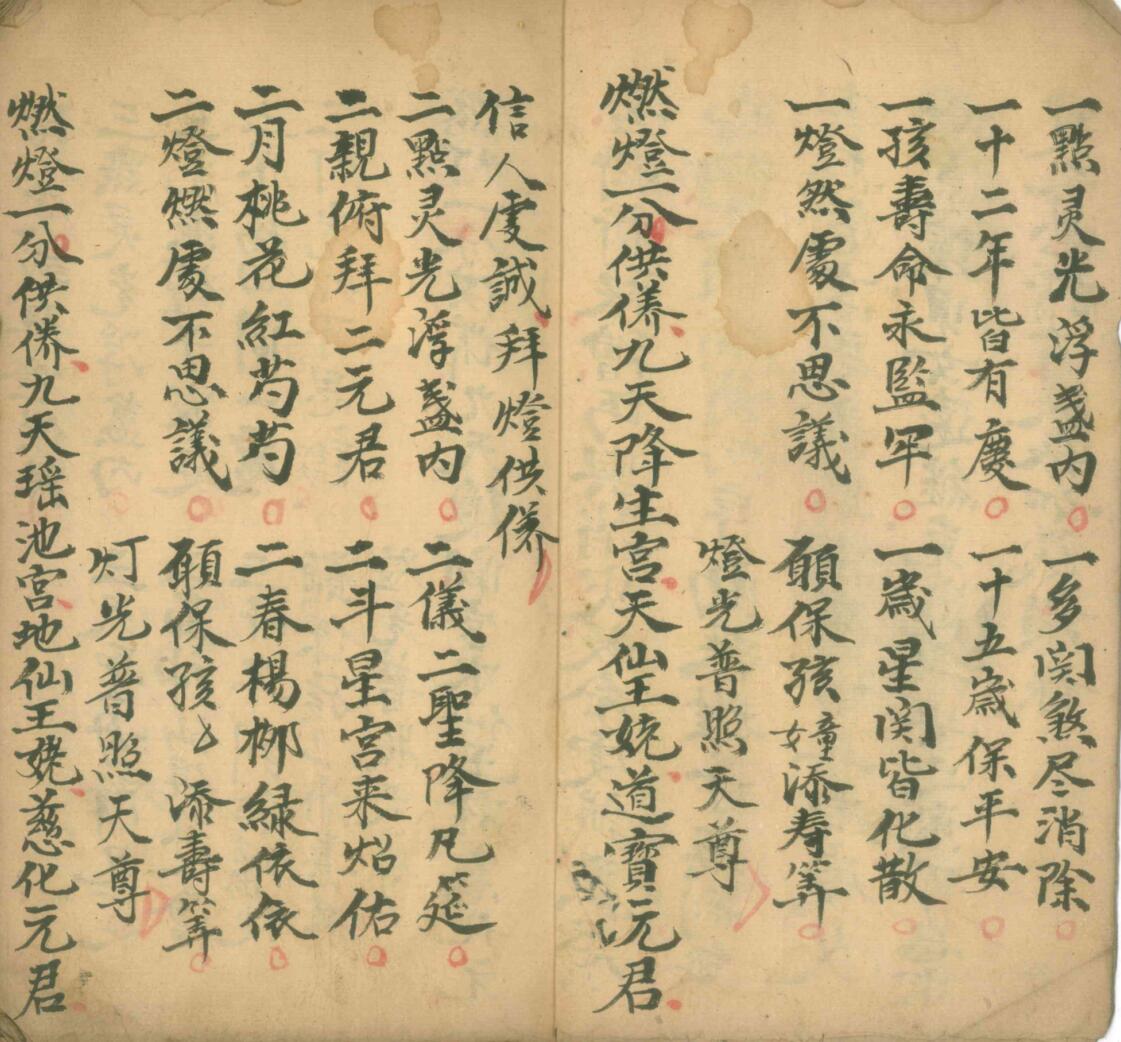 一點灵光浮盏内 一多関煞尽消除
一十二年皆有慶 一十五歲保平安
一孩壽命永監牢 一歲星関皆化散
一燈然處不思議 願保孩童添寿筭
燈光普照天尊
燃燈一分供养九天降生宫天仙王姥道寶元君
信人虔誠拜燈供养
二點灵光浮盏内 二儀二聖降凡筵
二親俯拜二元君 二斗星宫来炤佑
二月桃花紅芍芍 二春楊柳緑依依
二燈燃處不思議 願保孩々添壽筭
灯光普照天尊
燃燈二分供养九天瑶池宫地仙王姥慈化元君